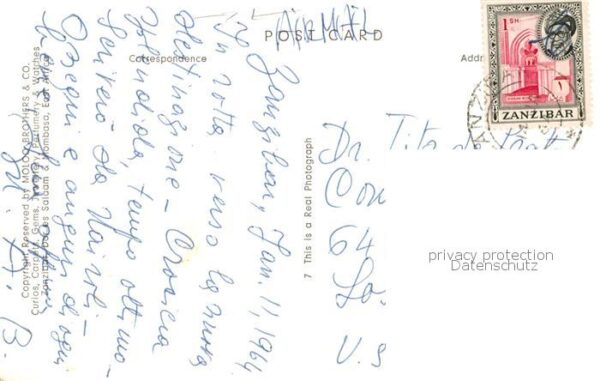 AIRMAIL
POST CARD
Correspondence
Addr
1 SH
ZANZIBAR
Zanzibar, Jan. 11, 1964
In rotta verso la nuova
destinazione - Crociera
splendida, tempo ottimo -
Scriverò da Nairobi -
Ossequi e auguri di ogni
B.
Copyright Reserved by MOLOO BROTHERS & CO.
Curios, Carpets, Gems, Jewellery, Perfumery & Watches
Zanzibar, Dar es Salaam & Mombasa, East Africa
7 This is a Real Photograph
Dr. Tito
Con
64
Lo
U.S
privacy protection
Datenschutz